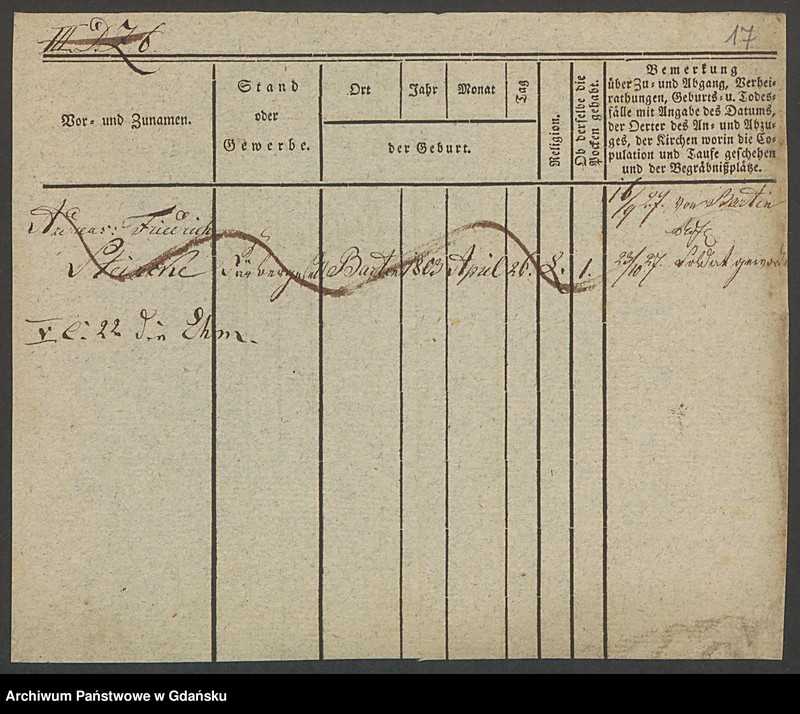 III D. 7 6.
17
Vor- und Zunamen.
Stand
oder
Gewerbe.
Ort
Jahr
Monat
Tag
der Geburt.
Religion.
Ob derselbe die
Pocken gehabt.
Bemerkung
über Zu- und Abgang, Verhei-
rathungen, Geburts- u. Todes-
fälle mit Angabe des Datums,
der Oerter des An- und Abzu-
ges, der Kirchen worin die Co-
pulation und Taufe geschehen
und der Begräbnißplätze.
Friedrich
Bartin 1803 April 26. L. 1.
16/9 27. von Bartin
23/10 27. Soldat
V C: 22 die Ehm.
Archiwum Państwowe w Gdańsku